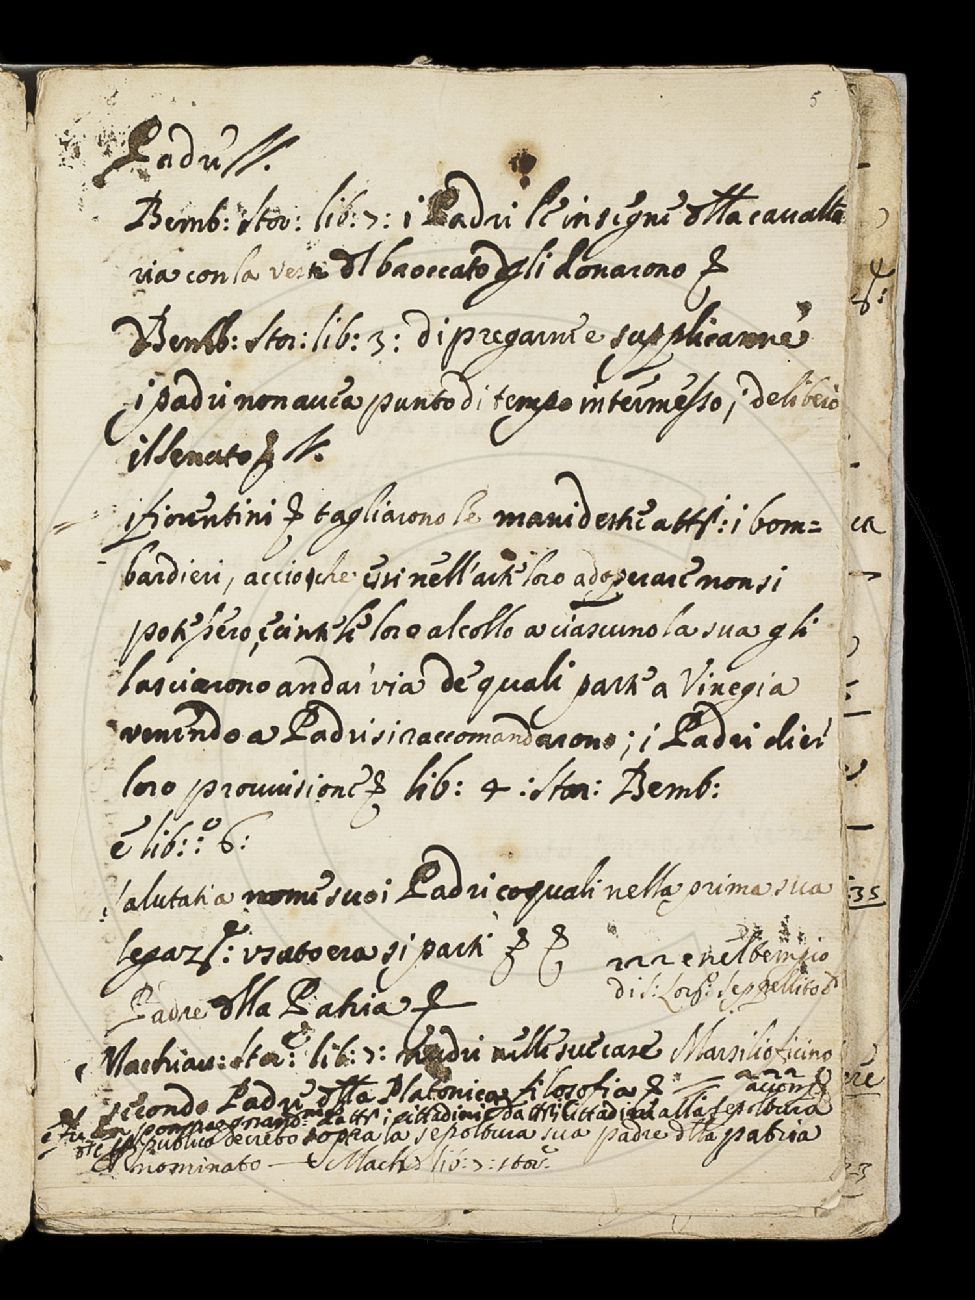 5
Padri //.
Bemb: Stor: lib: 7: i Padri le insegne dlla caualle
ria con la veste dl baoccato gli donarono
Bemb: Stor: lib: 3: di pregarnie supplicarne
i padri non auea punto di tempo intermesso, deliberò
il Senato //.
i fiorentini tagliarono le mani destre a tti i bom=
bardieri, accioche essi nell'arte loro adoperare non si
potessero, e cinte le loro al collo a ciascuno la sua gli
lasciarono andar via de quali parte a Vinegia
venendo a Padri si raccomandarono; i Padri dier
loro prouuisione lib: 4: Stor: Bemb:
e lib:o 6:
Salutati a nome suo i Padri co quali nella prima sua
legaz: usato era si partì
222 e nel tempio
di S: Lor:o seppellito
Padre dlla Patria
Machiau: Stor: lib: 7: nelle sue case Marsilio ficino
secondo Padre dlla Platonica filosofia
i cittadini alla sepoltura
publico decreto sopra la sepoltura sua padre dlla patria
nominato — Mach: lib: 7: stor: